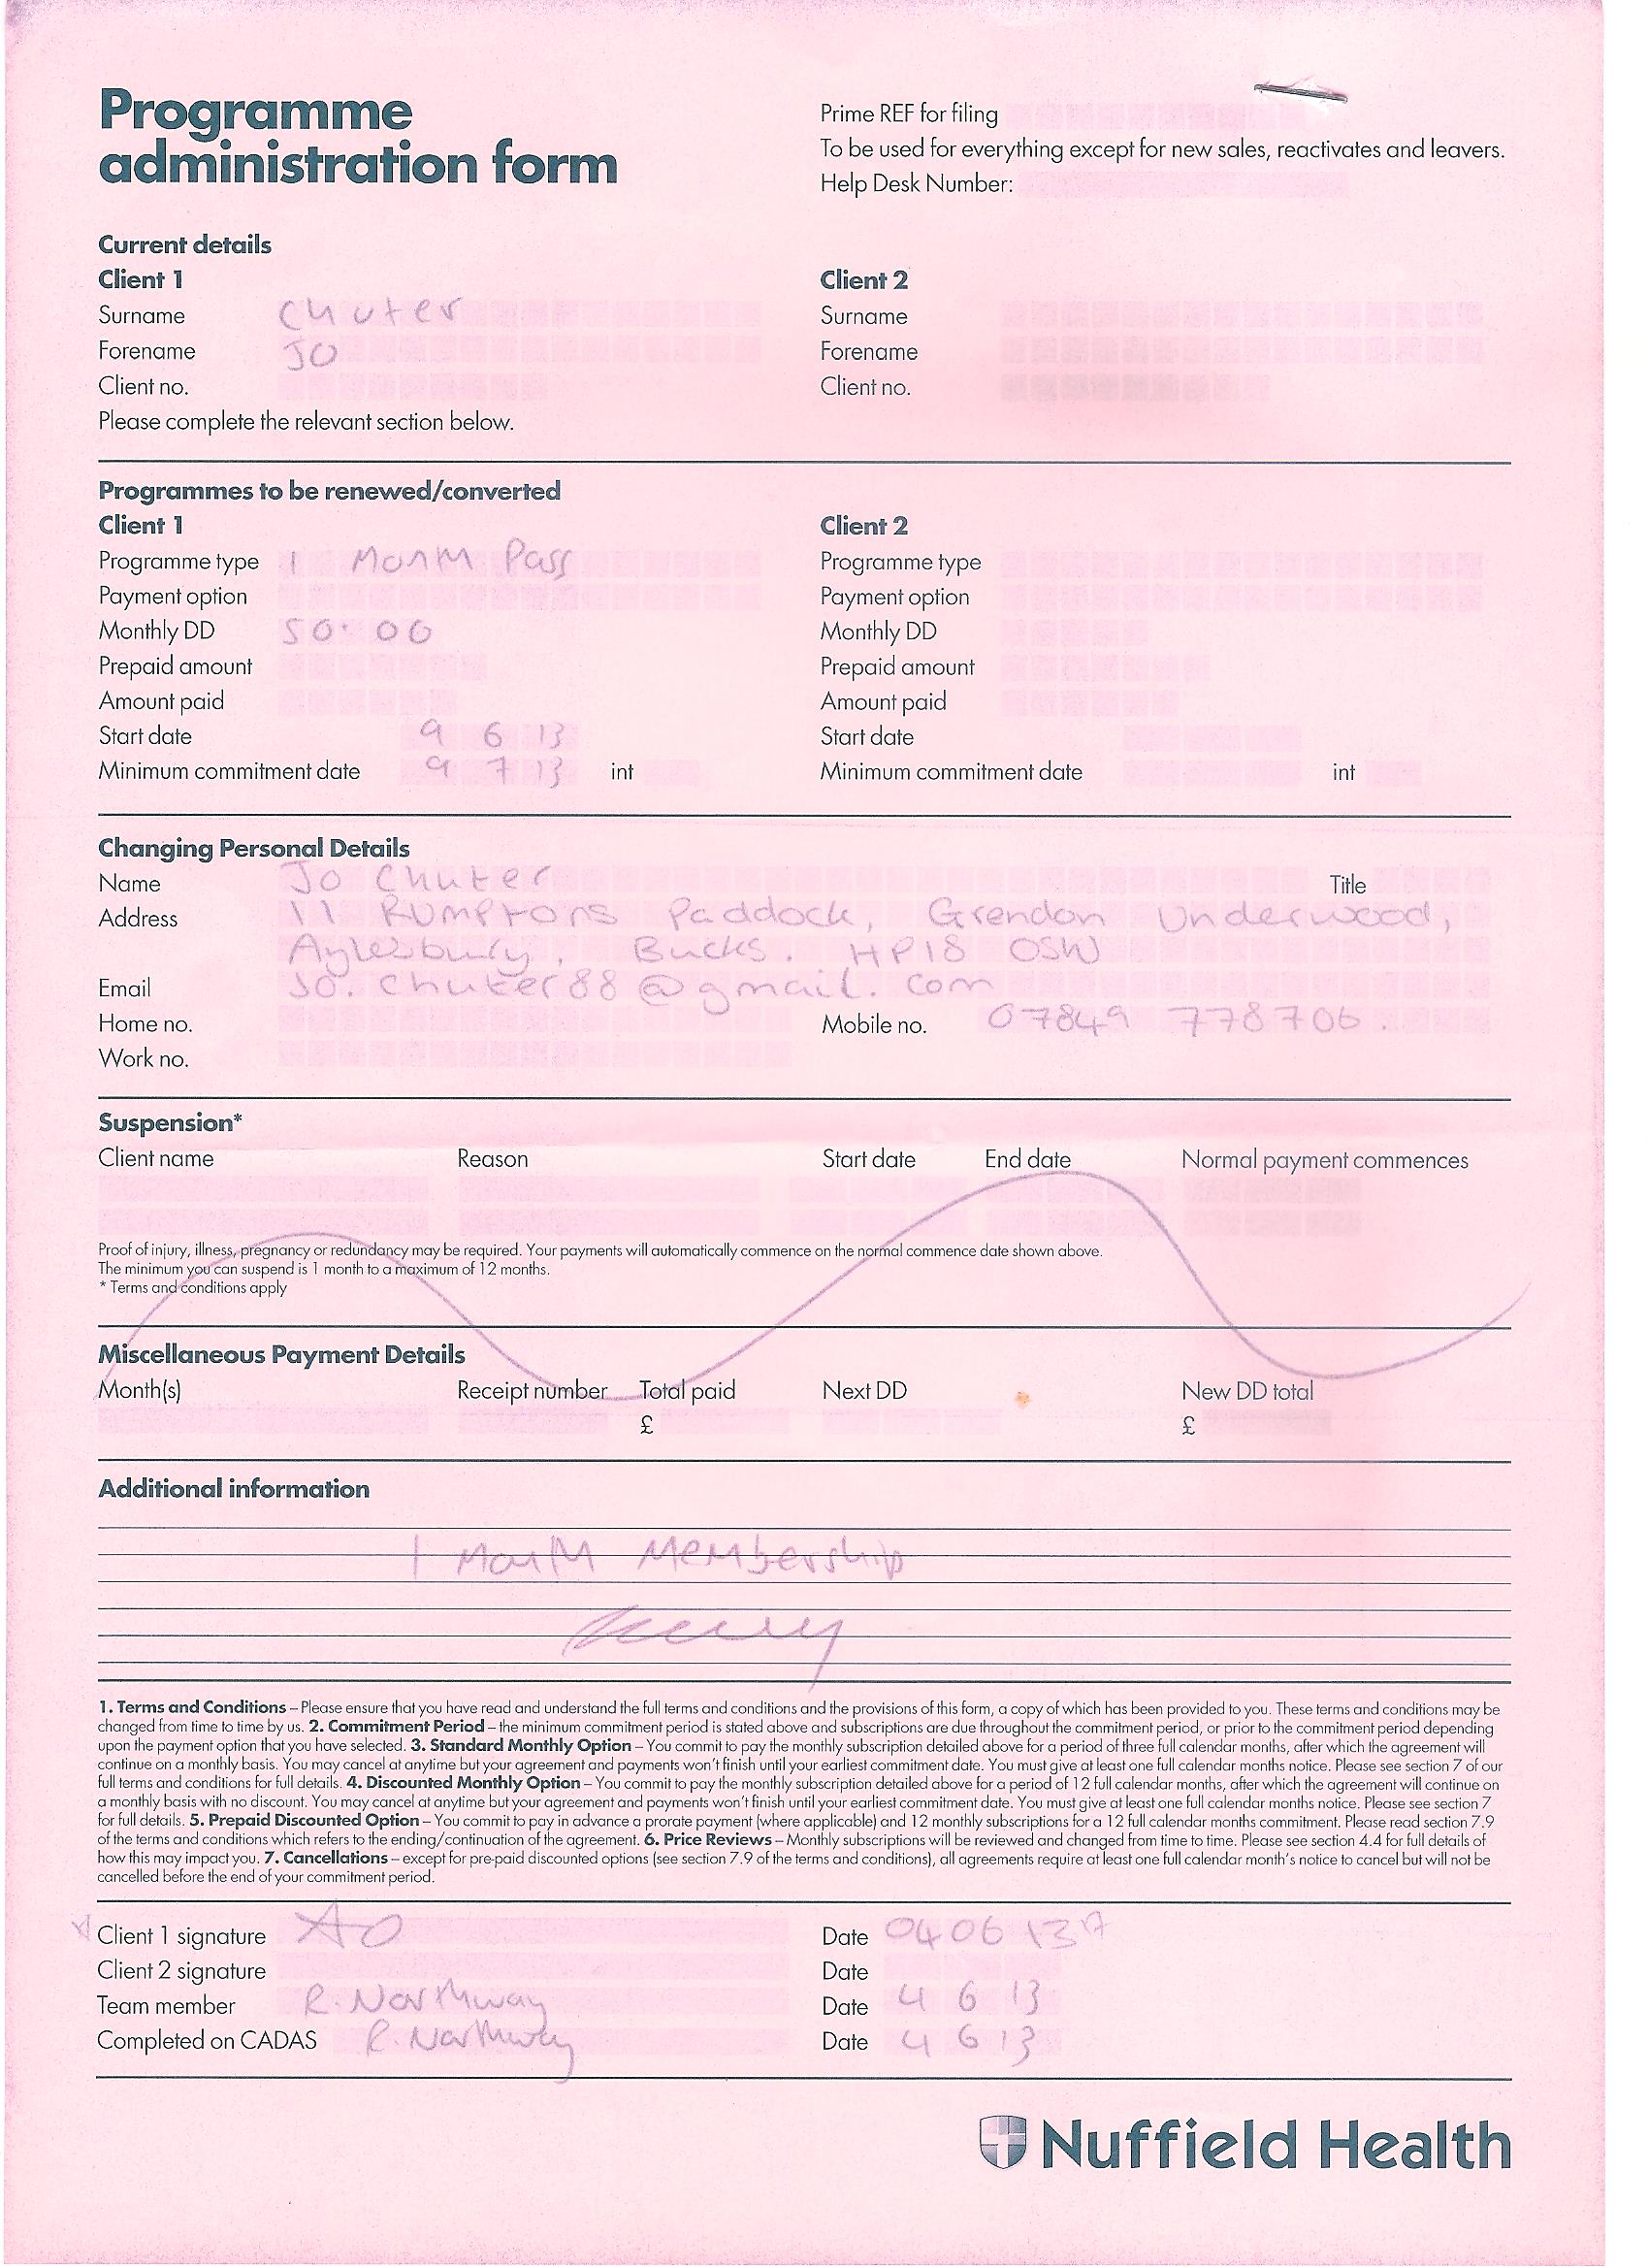 Programme
administration form
Prime REF for filing
To be used for everything except for new sales, reactivates and leavers.
Help Desk Number:
Current details
Client 1
Client 2
Surname Chuter
Surname
Forename JO
Forename
Client no.
Client no.
Please complete the relevant section below.
Programmes to be renewed/converted
Client 1
Client 2
Programme type 1 Month Pass
Programme type
Payment option
Payment option
Monthly DD 50.00
Monthly DD
Prepaid amount
Prepaid amount
Amount paid
Amount paid
Start date 9 6 13
Start date
Minimum commitment date 9 7 13 int
Minimum commitment date int
Changing Personal Details
Name Jo Chuter Title
Address 11 Rumptons Paddock, Grendon Underwood,
Aylesbury, Bucks. HP18 0SW
Email Jo.chuter88@gmail.com
Home no. Mobile no. 07849 778706.
Work no.
Suspension*
Client name Reason Start date End date Normal payment commences
Proof of injury, illness, pregnancy or redundancy may be required. Your payments will automatically commence on the normal commence date shown above.
The minimum you can suspend is 1 month to a maximum of 12 months.
* Terms and conditions apply
Miscellaneous Payment Details
Month(s) Receipt number Total paid Next DD New DD total
£ £
Additional information
1 Month Membership
1. Terms and Conditions – Please ensure that you have read and understand the full terms and conditions and the provisions of this form, a copy of which has been provided to you. These terms and conditions may be
changed from time to time by us. 2. Commitment Period – the minimum commitment period is stated above and subscriptions are due throughout the commitment period, or prior to the commitment period depending
upon the payment option that you have selected. 3. Standard Monthly Option – You commit to pay the monthly subscription detailed above for a period of three full calendar months, after which the agreement will
continue on a monthly basis. You may cancel at anytime but your agreement and payments won't finish until your earliest commitment date. You must give at least one full calendar months notice. Please see section 7 of our
full terms and conditions for full details. 4. Discounted Monthly Option – You commit to pay the monthly subscription detailed above for a period of 12 full calendar months, after which the agreement will continue on
a monthly basis with no discount. You may cancel at anytime but your agreement and payments won't finish until your earliest commitment date. You must give at least one full calendar months notice. Please see section 7
for full details. 5. Prepaid Discounted Option – You commit to pay in advance a prorate payment (where applicable) and 12 monthly subscriptions for a 12 full calendar months commitment. Please read section 7.9
of the terms and conditions which refers to the ending/continuation of the agreement. 6. Price Reviews – Monthly subscriptions will be reviewed and changed from time to time. Please see section 4.4 for full details of
how this may impact you. 7. Cancellations – except for pre-paid discounted options (see section 7.9 of the terms and conditions), all agreements require at least one full calendar month's notice to cancel but will not be
cancelled before the end of your commitment period.
Client 1 signature Date 04 06 13
Client 2 signature Date
Team member R. Northway Date 4 6 13
Completed on CADAS R. Northway Date 4 6 13
Nuffield Health